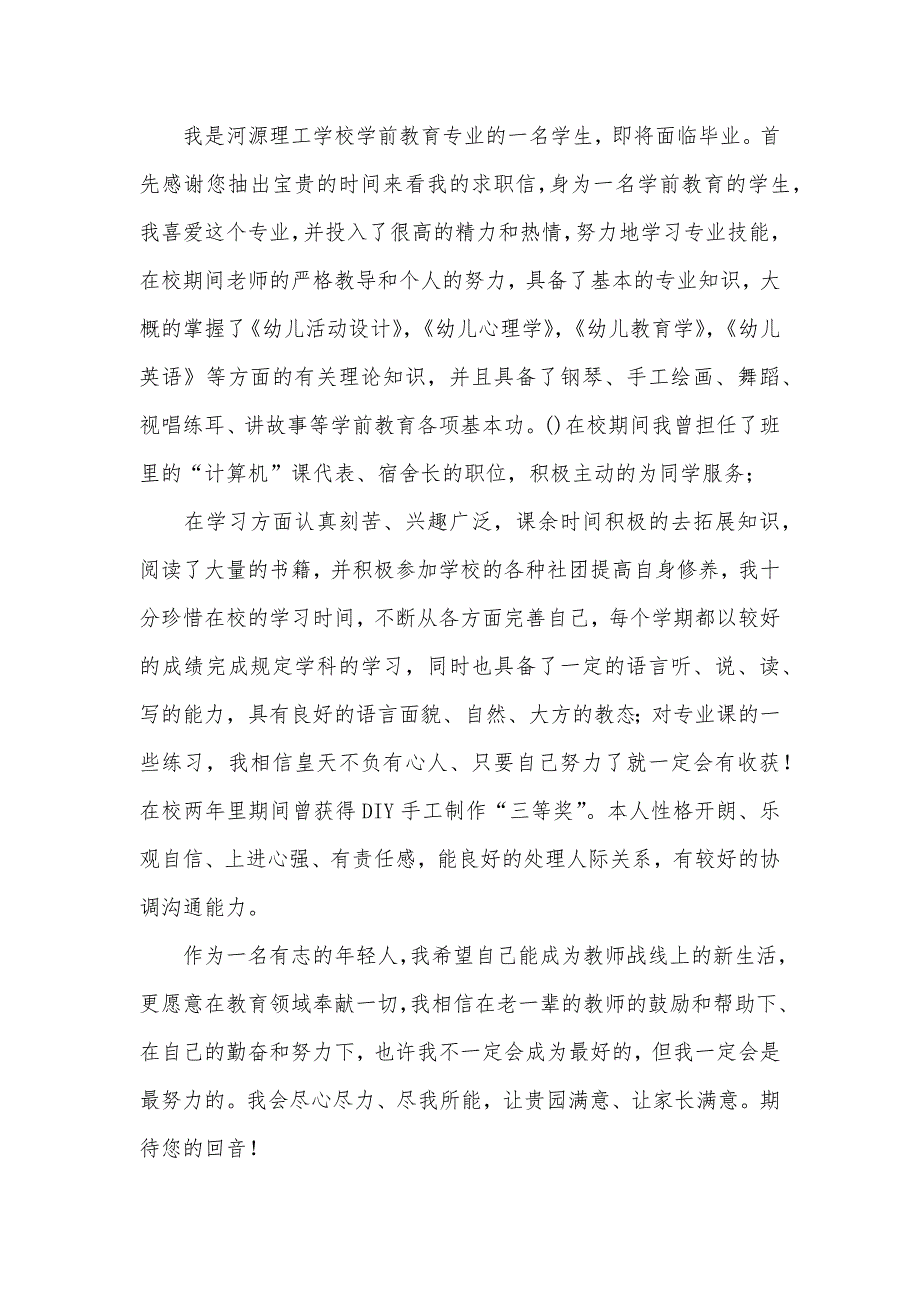 我是河源理工学校学前教育专业的一名学生，即将面临毕业。首
先感谢您抽出宝贵的时间来看我的求职信，身为一名学前教育的学生，
我喜爱这个专业，并投入了很高的精力和热情，努力地学习专业技能，
在校期间老师的严格教导和个人的努力，具备了基本的专业知识，大
概的掌握了《幼儿活动设计》，《幼儿心理学》，《幼儿教育学》，《幼儿
英语》等方面的有关理论知识，并且具备了钢琴、手工绘画、舞蹈、
视唱练耳、讲故事等学前教育各项基本功。()在校期间我曾担任了班
里的“计算机”课代表、宿舍长的职位，积极主动的为同学服务；
在学习方面认真刻苦、兴趣广泛，课余时间积极的去拓展知识，
阅读了大量的书籍，并积极参加学校的各种社团提高自身修养，我十
分珍惜在校的学习时间，不断从各方面完善自己，每个学期都以较好
的成绩完成规定学科的学习，同时也具备了一定的语言听、说、读、
写的能力，具有良好的语言面貌、自然、大方的教态；对专业课的一
些练习，我相信皇天不负有心人、只要自己努力了就一定会有收获！
在校两年里期间曾获得 DIY 手工制作“三等奖”。本人性格开朗、乐
观自信、上进心强、有责任感，能良好的处理人际关系，有较好的协
调沟通能力。
作为一名有志的年轻人，我希望自己能成为教师战线上的新生活，
更愿意在教育领域奉献一切，我相信在老一辈的教师的鼓励和帮助下、
在自己的勤奋和努力下，也许我不一定会成为最好的，但我一定会是
最努力的。我会尽心尽力、尽我所能，让贵园满意、让家长满意。期
待您的回音！